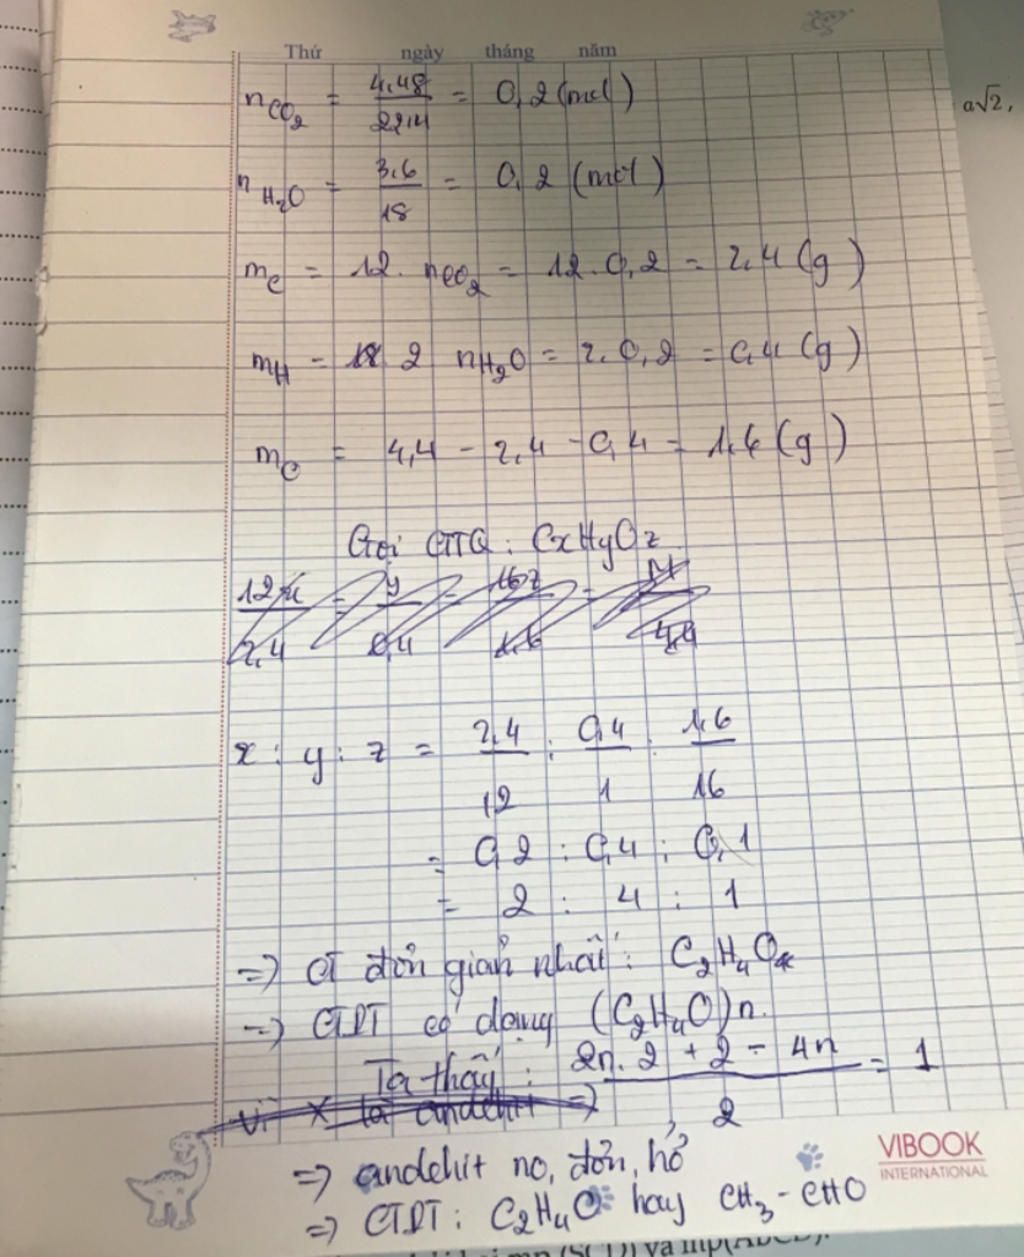 Thứ ngày tháng năm
n CO₂ = 4,48/22,4 = 0,2 (mol)
a√2,
n H₂O = 3,6/18 = 0,2 (mol)
m_C = 12. n CO₂ = 12.0,2 = 2,4 (g)
m_H = 2 n H₂O = 2.0,2 = 0,4 (g)
m_O = 4,4 - 2,4 - 0,4 = 1,6 (g)
Gọi CTTQ: CxHyOz
12x/2,4 = y/0,4 = 16z/1,6 = M/4,4
x : y : z = 2,4/12 : 0,4/1 : 1,6/16
= 0,2 : 0,4 : 0,1
= 2 : 4 : 1
=> CT đơn giản nhất: C₂H₄O
=> CTPT có dạng (C₂H₄O)n.
Ta thấy: (2n.2 + 2 - 4n)/2 = 1
Vì X là andehit =>
=> andehit no, đơn, hở
=> CTPT: C₂H₄O hay CH₃-CHO
VIBOOK
INTERNATIONAL
và mp(ABCD).